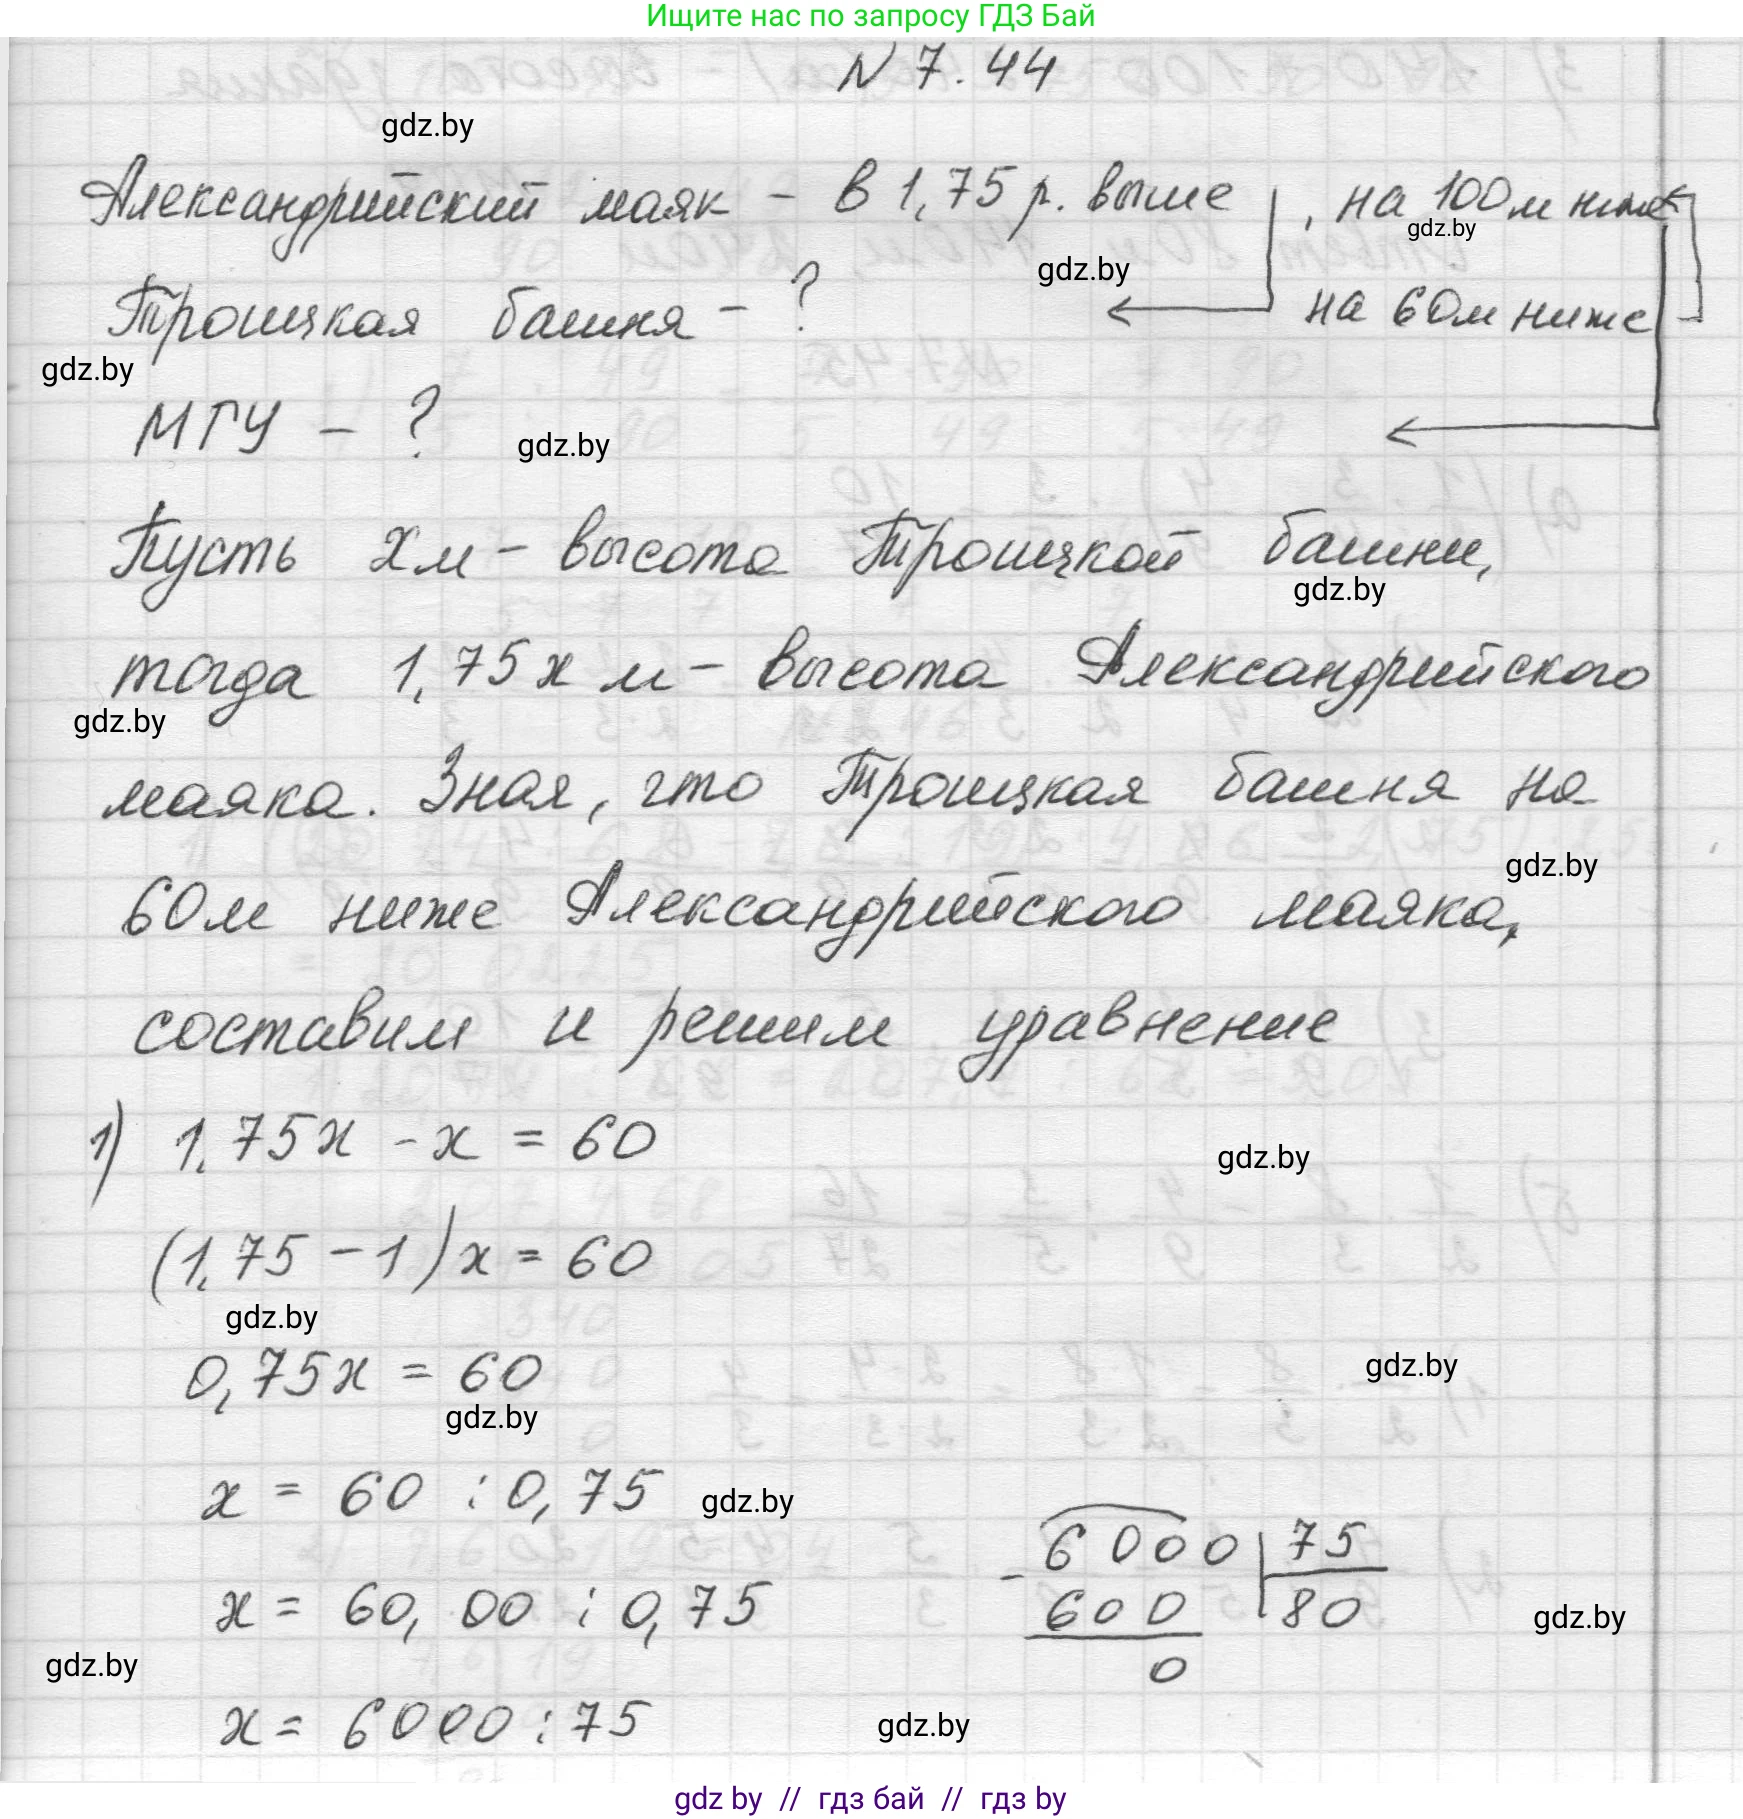 Ищите нас по запросу ГДЗ Бай
N 7.44
gdz.by
Александрийский маяк - в 1,75 р. выше , на 100м ниже
gdz.by
gdz.by
Троицкая башня - ? на 60м ниже
gdz.by
МГУ - ?
gdz.by
Пусть x м - высота Троицкой башни,
gdz.by
тогда 1,75x м - высота Александрийского
gdz.by
маяка. Зная, что Троицкая башня на
gdz.by
60м ниже Александрийского маяка,
составим и решим уравнение
1) 1,75x - x = 60
gdz.by
(1,75 - 1)x = 60
gdz.by
0,75x = 60
gdz.by
gdz.by
x = 60 : 0,75
gdz.by
x = 60,00 : 0,75
6000 75
- 600 80
0
gdz.by
gdz.by
x = 6000 : 75
gdz.by
gdz by // гдз бай // гдз by